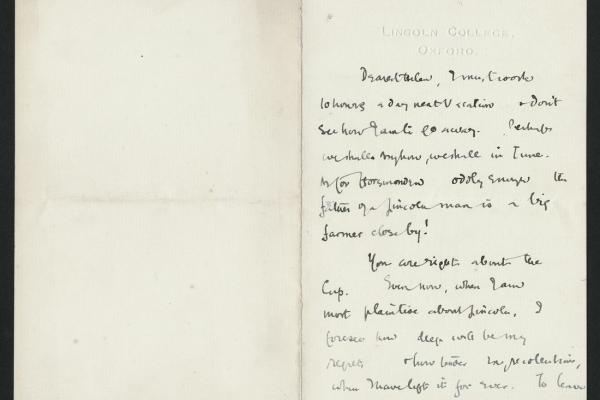 LINCOLN COLLEGE,
OXFORD.
Dearest Helen, I must work
10 hours a day next Vacation & don't
see how I am to go away. Perhaps
we shall. Anyhow, we shall in June.
As for Horsmonden oddly enough the
father of a Lincoln man is a big
farmer close by!
You are right about the
Cup. Even now, when I am
most plaintive about Lincoln, I
foresee how deep will be my
regrets & how tender my recollections,
when I have left it for ever. To leave